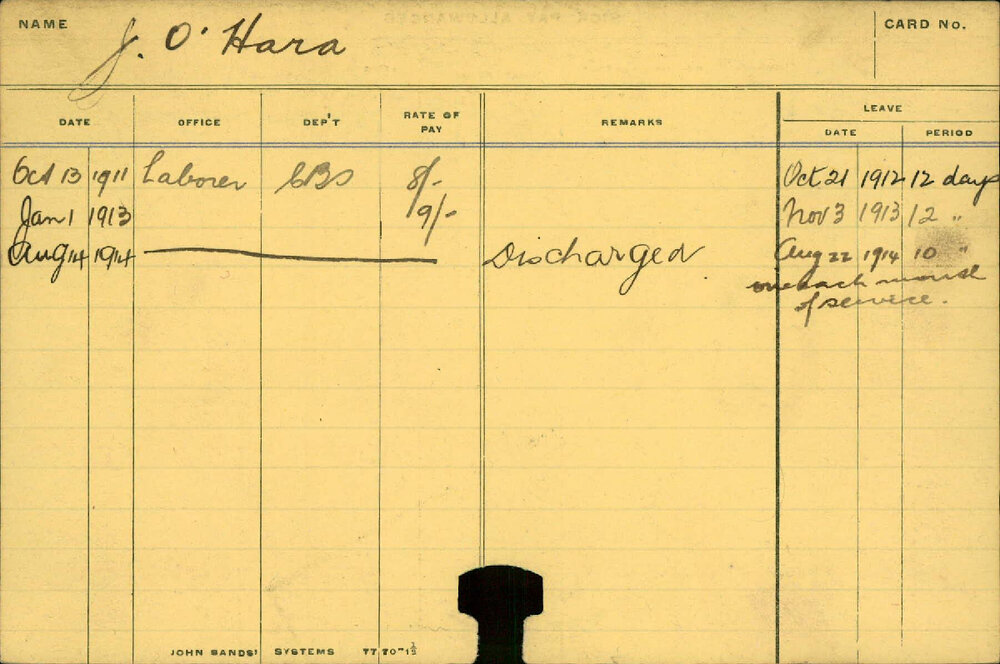 NAME J. O'Hara CARD No.
DATE OFFICE DEP'T RATE OF PAY REMARKS LEAVE
DATE PERIOD
Oct 13 1911 Laborer CBS 8/- Oct 21 1912 12 days
Jan 1 1913 9/- Nov 3 1913 12 "
Aug 14 1914 Discharged Aug 22 1914 10 "
one each month
of service.
JOHN SANDS' SYSTEMS